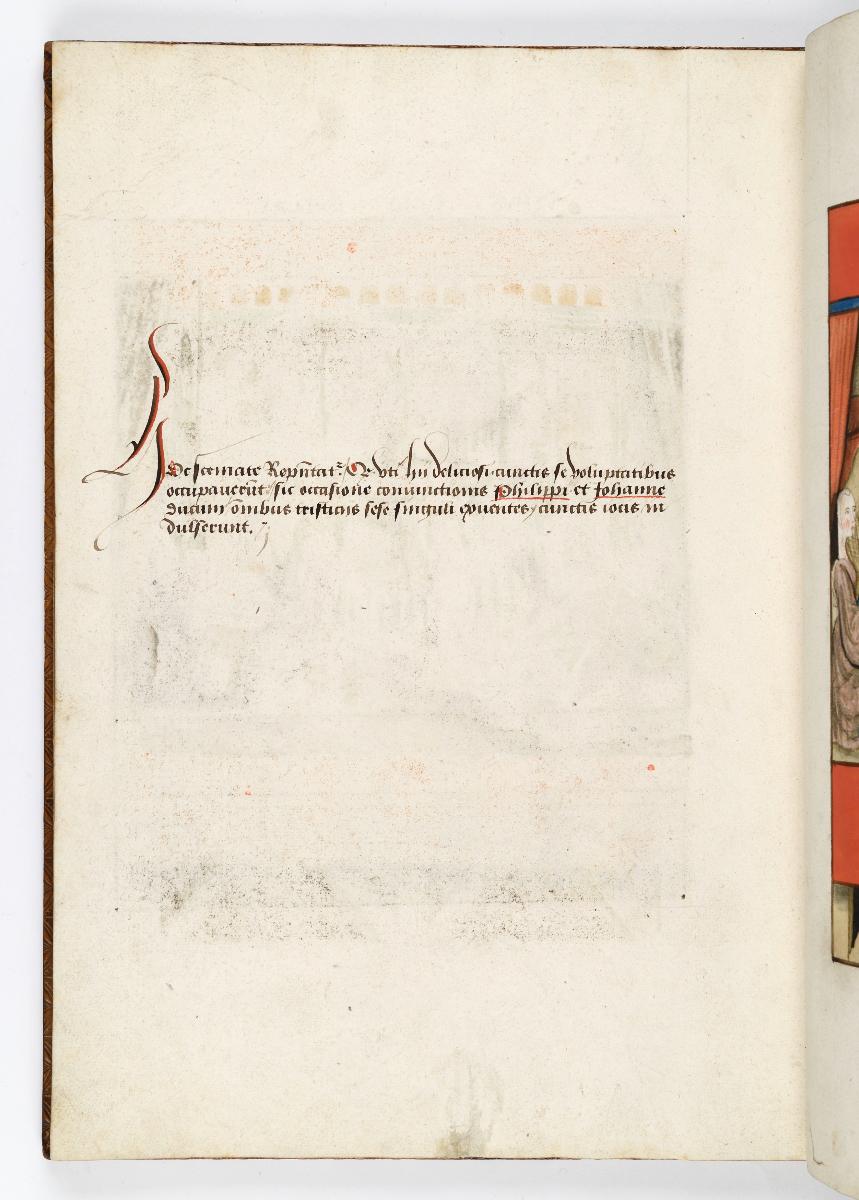 Hoc scemate Rep̄ntat᷑. Qꝫ vti hii deliciosi cunctis se voluptatibus
occupauerūt sic occasione coniunctionis Philippi et Johanne
ducum om̄ibus tristiciis sese singuli exuentes cunctis iocis in
dulserunt.